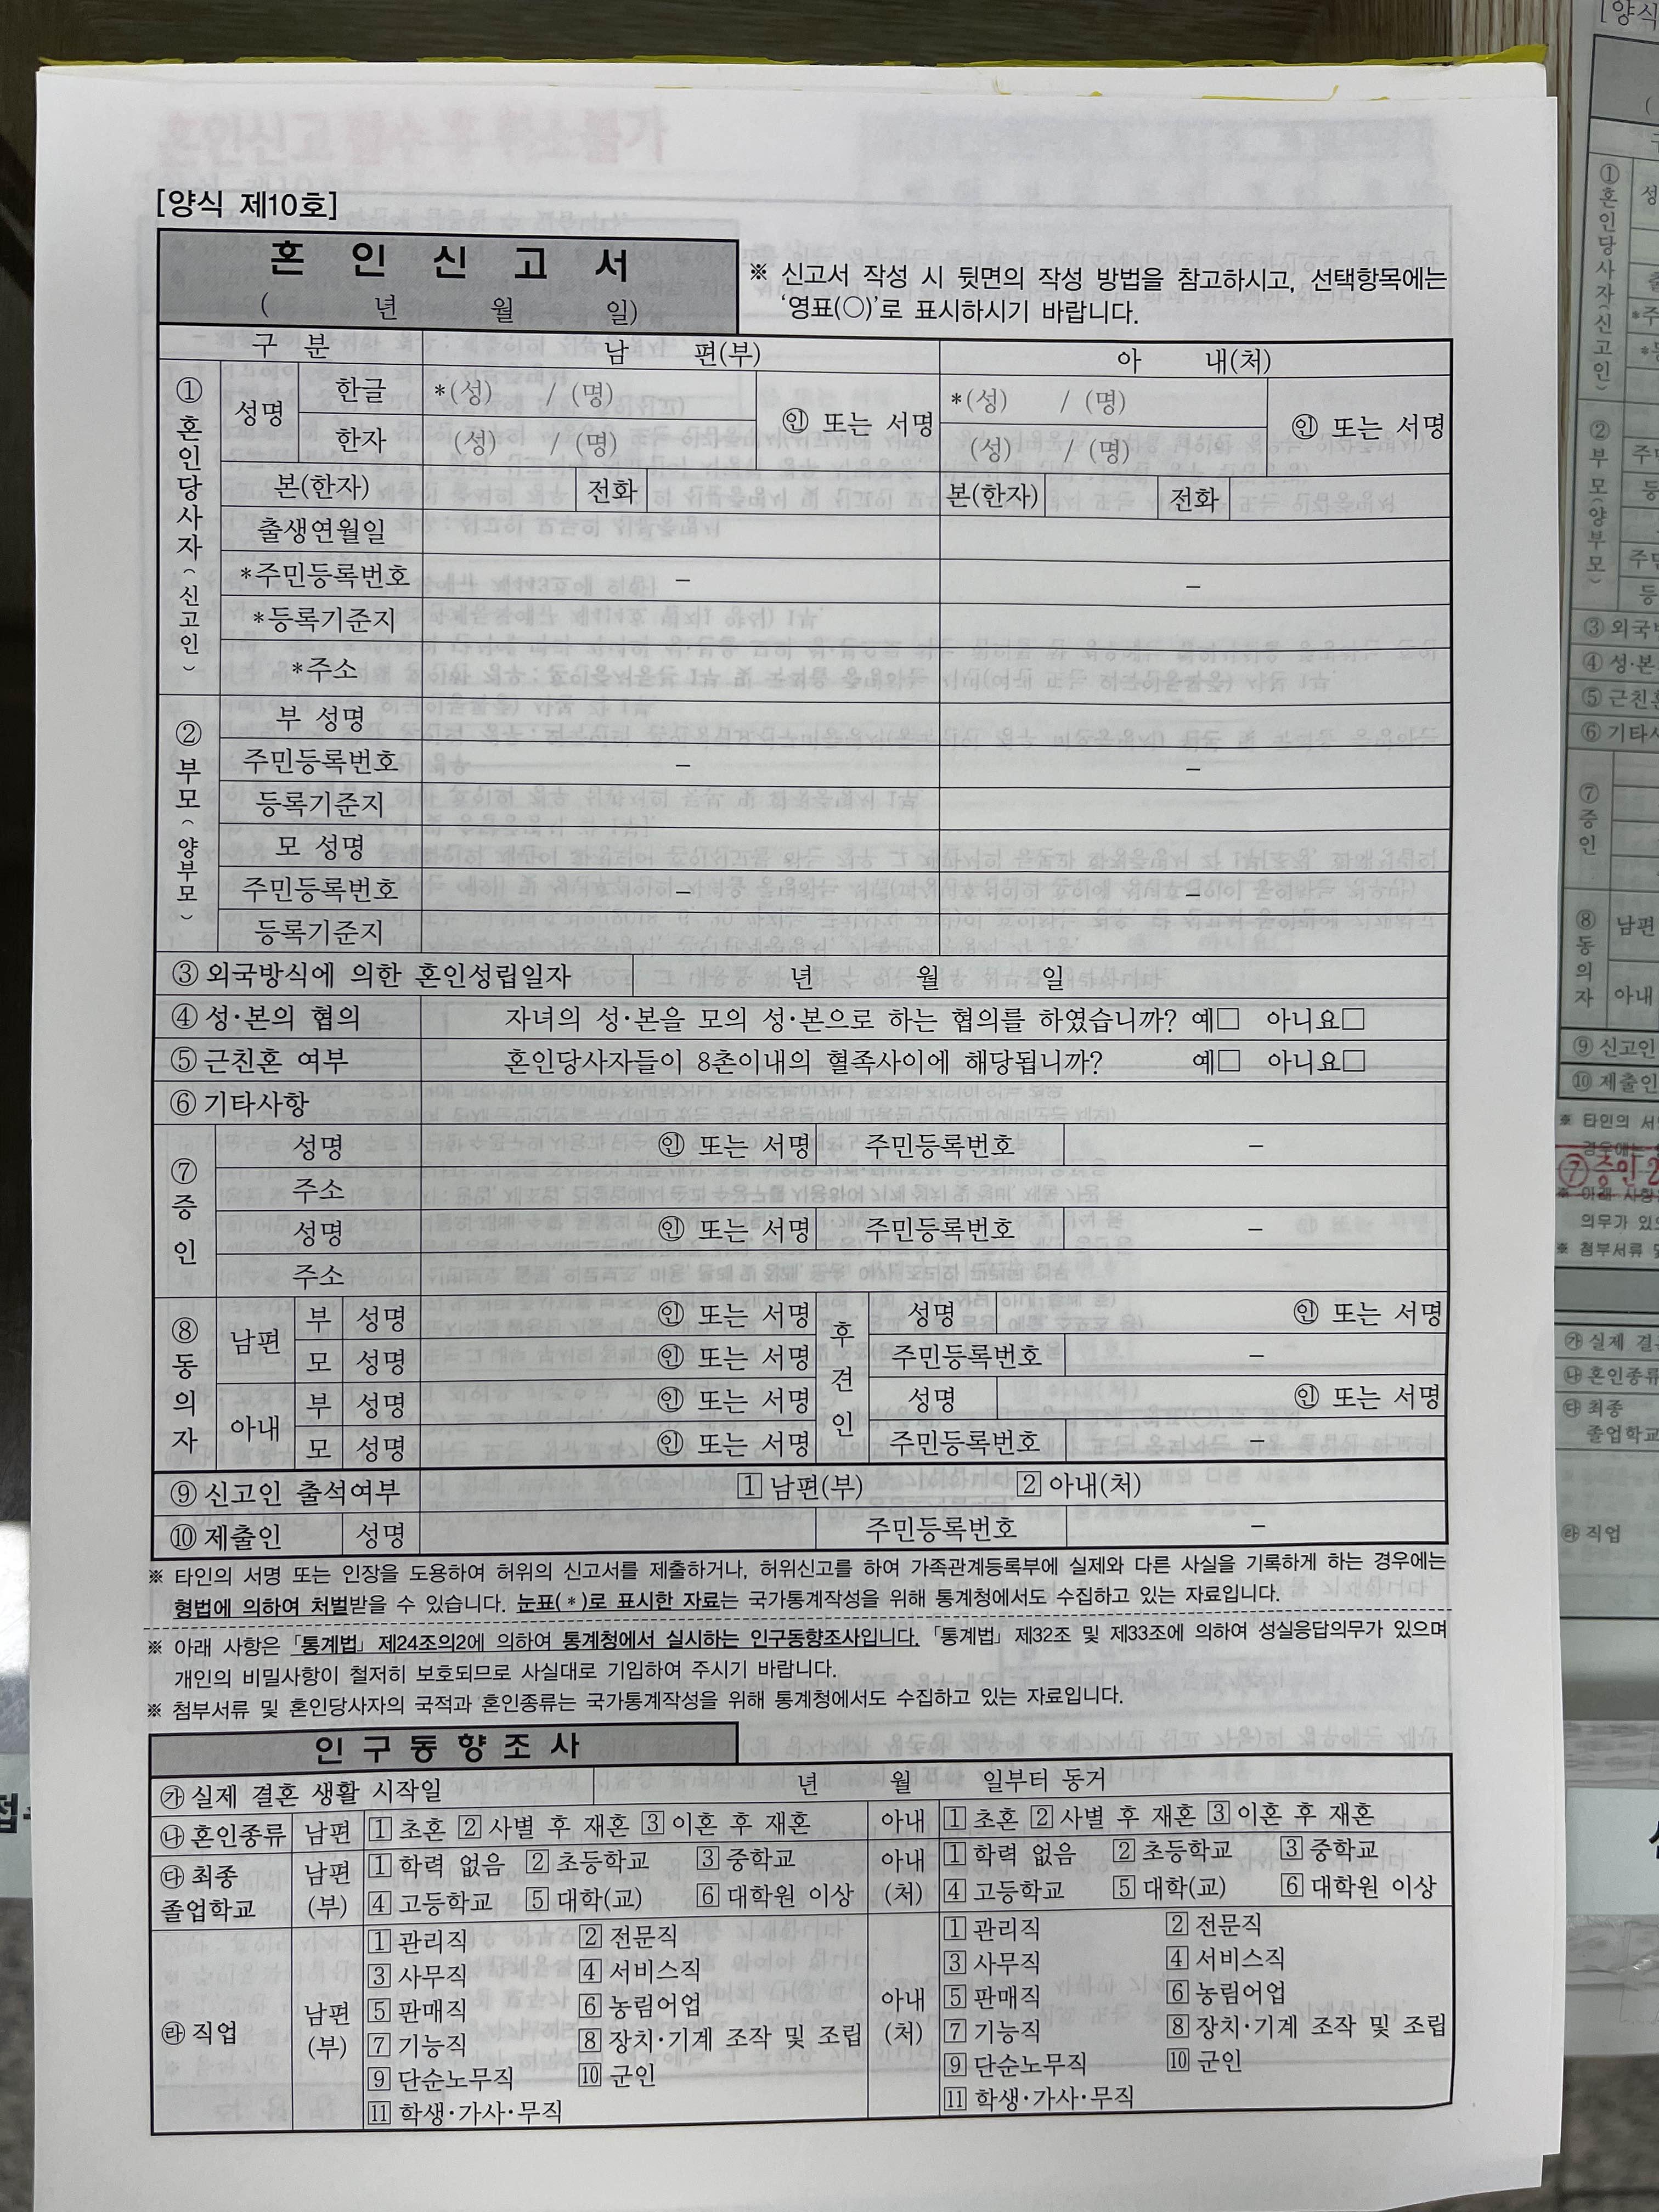 혼인신고 접수 후 취소불가
[양식 제10호]
혼 인 신 고 서
( 년 월 일)
※ 신고서 작성 시 뒷면의 작성 방법을 참고하시고, 선택항목에는
‘영표(○)’로 표시하시기 바랍니다.
구 분 남 편(부) 아 내(처)
① 혼인당사자(신고인)
성명 한글 *(성) / (명) ㊞ 또는 서명 *(성) / (명) ㊞ 또는 서명
한자 (성) / (명) (성) / (명)
본(한자) 전화 본(한자) 전화
출생연월일
*주민등록번호 – –
*등록기준지
*주소
② 부모(양부모)
부 성명
주민등록번호 – –
등록기준지
모 성명
주민등록번호 – –
등록기준지
③ 외국방식에 의한 혼인성립일자 년 월 일
④ 성·본의 협의 자녀의 성·본을 모의 성·본으로 하는 협의를 하였습니까? 예□ 아니요□
⑤ 근친혼 여부 혼인당사자들이 8촌이내의 혈족사이에 해당됩니까? 예□ 아니요□
⑥ 기타사항
⑦ 증인
성명 ㊞ 또는 서명 주민등록번호 –
주소
성명 ㊞ 또는 서명 주민등록번호 –
주소
⑧ 동의자
남편 부 성명 ㊞ 또는 서명 후견인 성명 ㊞ 또는 서명
모 성명 ㊞ 또는 서명 주민등록번호 –
아내 부 성명 ㊞ 또는 서명 성명 ㊞ 또는 서명
모 성명 ㊞ 또는 서명 주민등록번호 –
⑨ 신고인 출석여부 1 남편(부) 2 아내(처)
⑩ 제출인 성명 주민등록번호 –
※ 타인의 서명 또는 인장을 도용하여 허위의 신고서를 제출하거나, 허위신고를 하여 가족관계등록부에 실제와 다른 사실을 기록하게 하는 경우에는
형법에 의하여 처벌받을 수 있습니다. 눈표(*)로 표시한 자료는 국가통계작성을 위해 통계청에서도 수집하고 있는 자료입니다.
※ 아래 사항은 「통계법」 제24조의2에 의하여 통계청에서 실시하는 인구동향조사입니다. 「통계법」 제32조 및 제33조에 의하여 성실응답의무가 있으며
개인의 비밀사항이 철저히 보호되므로 사실대로 기입하여 주시기 바랍니다.
※ 첨부서류 및 혼인당사자의 국적과 혼인종류는 국가통계작성을 위해 통계청에서도 수집하고 있는 자료입니다.
인 구 동 향 조 사
㉮ 실제 결혼 생활 시작일 년 월 일부터 동거
㉯ 혼인종류 남편 1 초혼 2 사별 후 재혼 3 이혼 후 재혼 아내 1 초혼 2 사별 후 재혼 3 이혼 후 재혼
㉰ 최종 졸업학교 남편(부) 1 학력 없음 2 초등학교 3 중학교 아내(처) 1 학력 없음 2 초등학교 3 중학교
4 고등학교 5 대학(교) 6 대학원 이상 4 고등학교 5 대학(교) 6 대학원 이상
㉱ 직업 남편(부) 아내(처)
1 관리직 2 전문직 1 관리직 2 전문직
3 사무직 4 서비스직 3 사무직 4 서비스직
5 판매직 6 농림어업 5 판매직 6 농림어업
7 기능직 8 장치·기계 조작 및 조립 7 기능직 8 장치·기계 조작 및 조립
9 단순노무직 10 군인 9 단순노무직 10 군인
11 학생·가사·무직 11 학생·가사·무직
[양식
① 혼인당사자(신고인)
② 부모(양부모)
③ 외국
④ 성·본
⑤ 근친
⑥ 기타
⑦ 증인
⑧ 동의자
남편
아내
⑨ 신고인
⑩ 제출인
※ 타인의
경우에는
⑦ 증인 2
※ 아래 사항
의무가
※ 첨부서류
㉮ 실제
㉯ 혼인종류
㉰ 최종
졸업학교
㉱ 직업